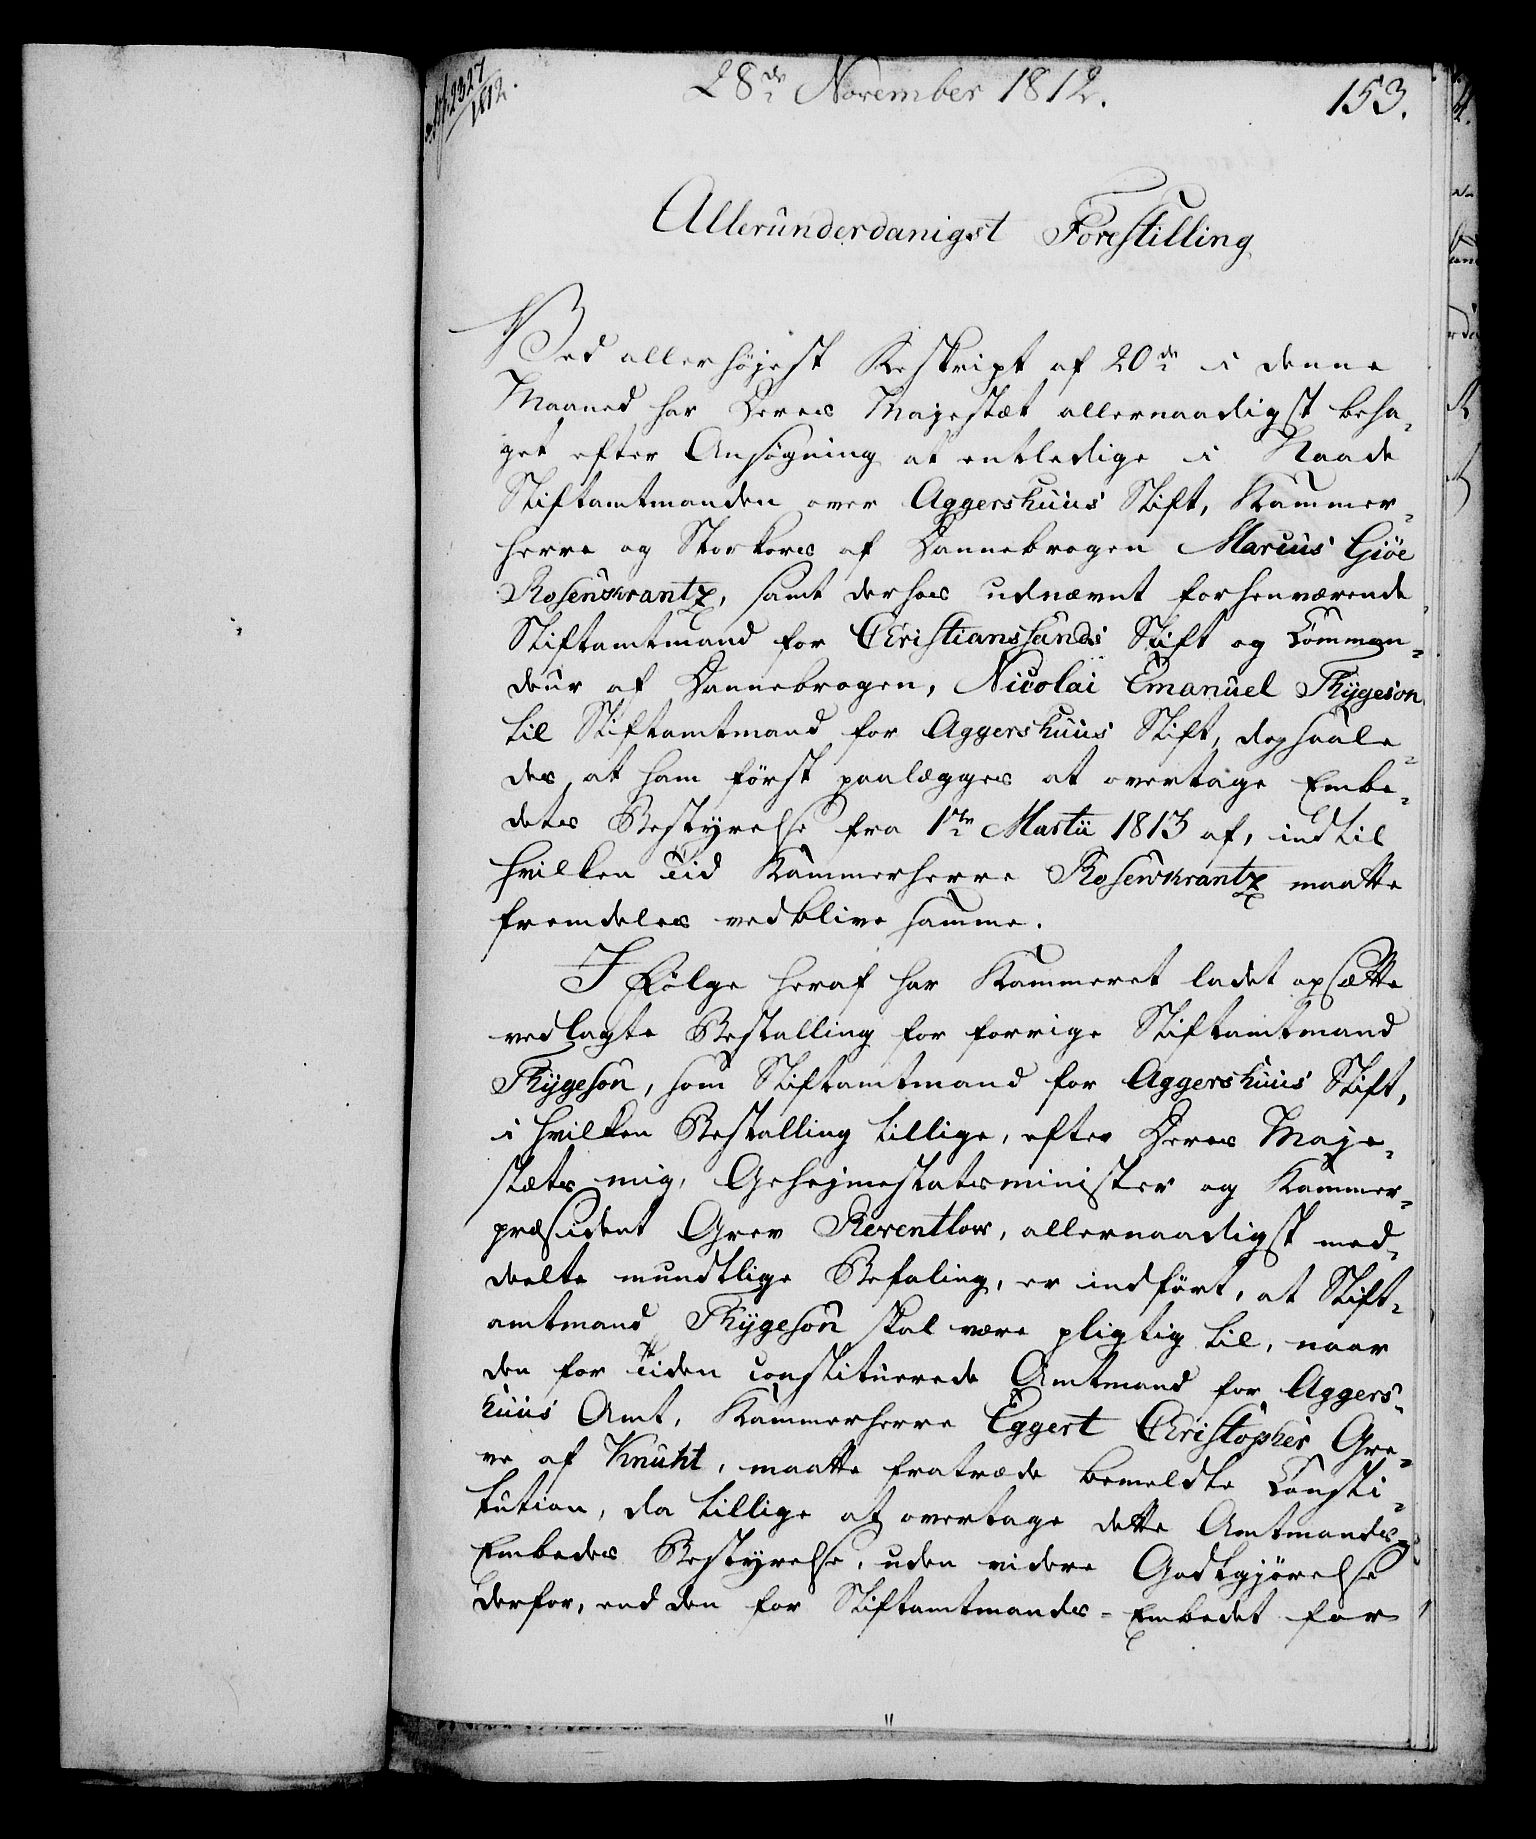 2327
1812.
28de November 1812.
153.
Allerunderdanigst Forestilling
Ved allerhøjest Reskript af 20de i denne
Maaned har Deres Majestæt allernaadigst beha-
get efter Ansøgning at entledige i Naade
Stiftamtmanden over Aggershuus Stift, Kammer-
herre og Storkors af Dannebrogen Marcus Giöe
Rosenkrantz, samt derhos udnævnt forhenværende
Stiftamtmand for Christianssands Stift og Comman-
deur af Dannebrogen, Nicolai Emanuel Thygeson
til Stiftamtmand for Aggershuus Stift, dog saale-
des, at ham først paalægges at overtage Embe-
dets Bestyrelse fra 1te Martii 1813 af, indtil
hvilken Tid Kammerherre Rosenkrantz maatte
fremdeles vedblive samme.
I Følge heraf har Kammeret ladet opsætte
vedlagte Bestalling for forrige Stiftamtmand
Thygeson, som Stiftamtmand for Aggershuus Stift,
i hvilken Bestalling tillige, efter Deres Maje-
stæts mig, Geheimestatsminister og Kammer-
præsident Grev Reventlow, allernaadigst med-
deelte mundtlige Befaling, er indført, at Stift-
amtmand Thygeson skal være pligtig til, naar
den for Tiden constituerede Amtmand for Aggers-
huus Amt, Kammerherre Eggert Christopher Gre-
ve af Knuht, maatte fratræde bemeldte Consti-
tution, da tillige at overtage dette Amtmands-
Embedes Bestyrelse, uden videre Godtgjørelse
derfor, end den for Stiftamtmands-Embedet for